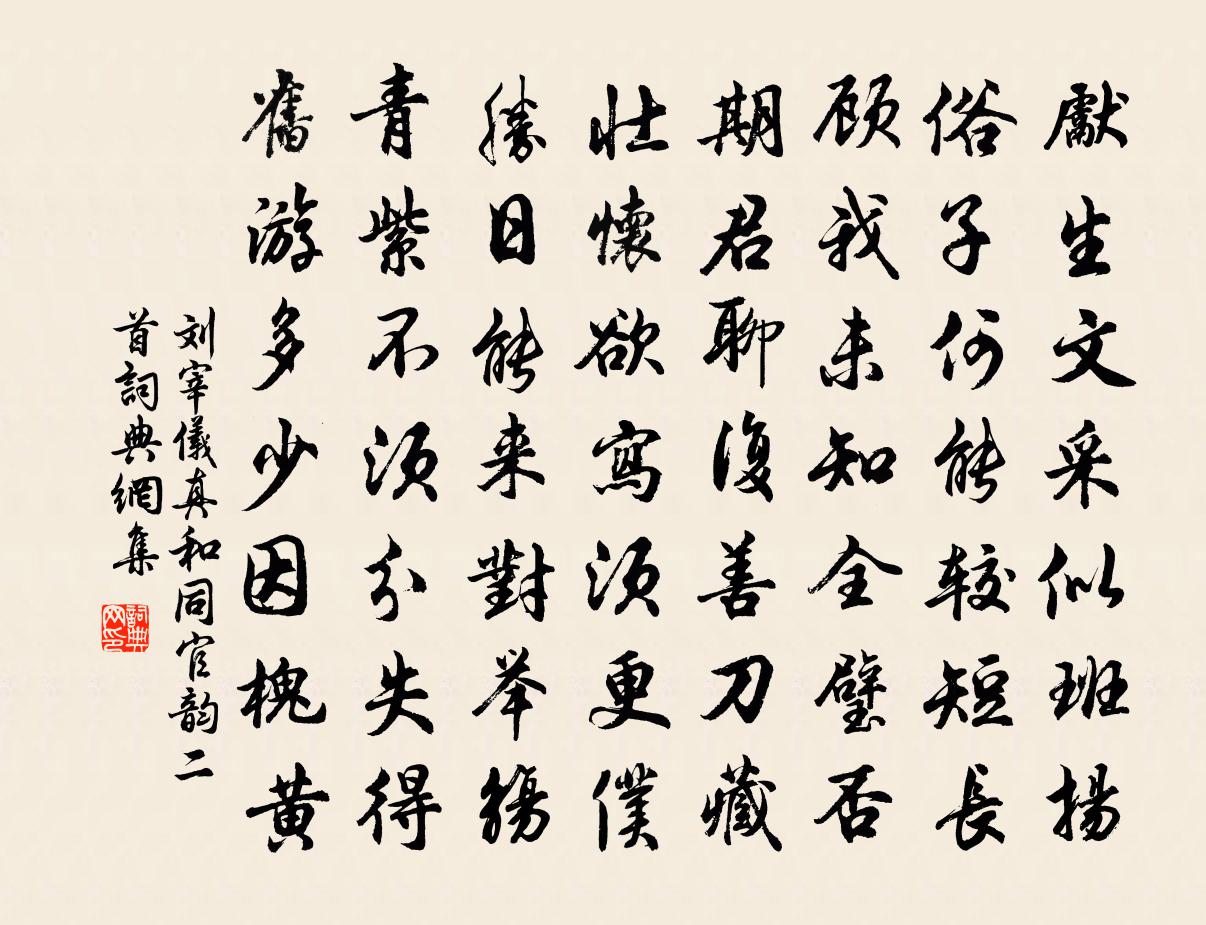 獻生文采似班揚
俗子何能较短長
顾我未知全璧否
期君聊復善刀藏
壮懷欲寫须更僕
勝日能来對举觴
青紫不须分失得
舊游多少因槐黄
刘宰儀真和同官韵二
首詞典網集
詞典
网印